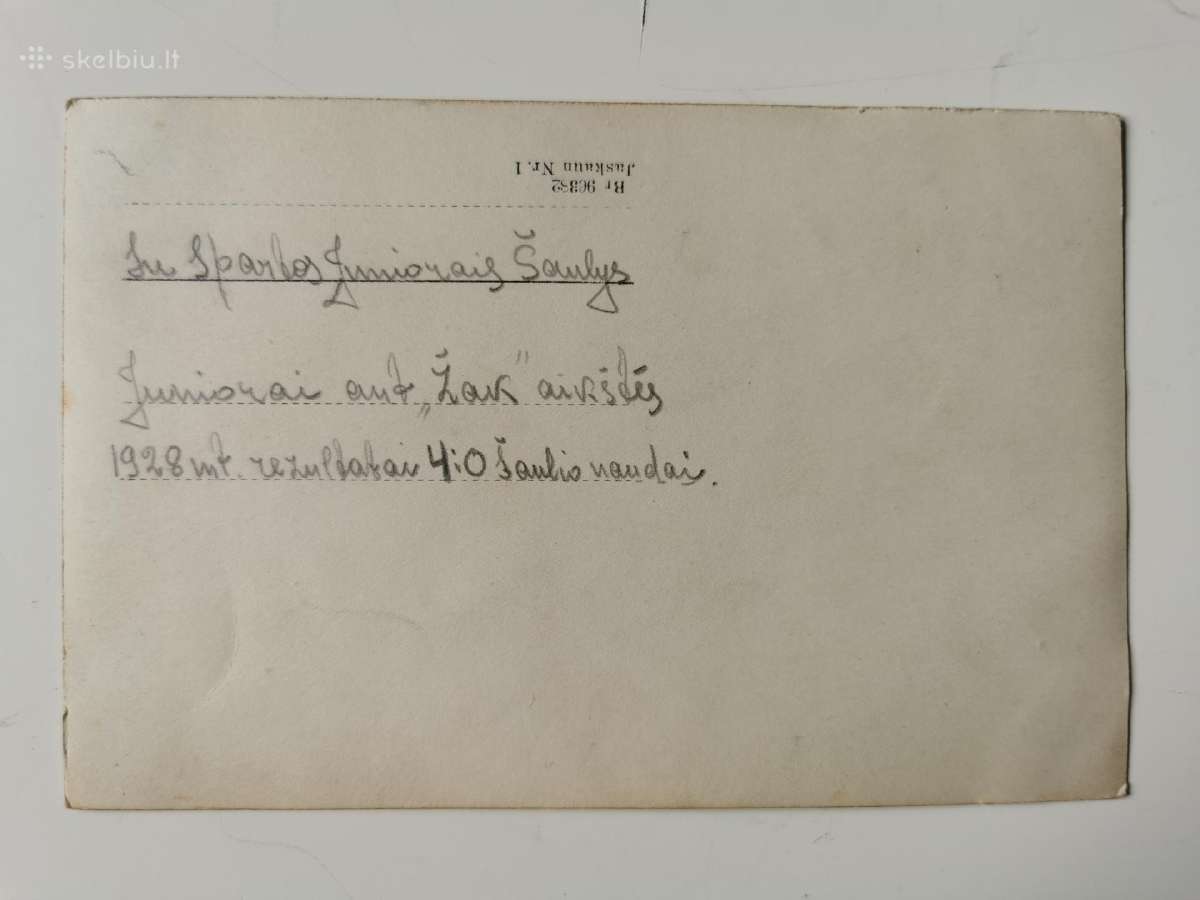 skelbiu.lt
Br 96832
Juskaun Nr. 1
Su Spartos Juniorais Šaulys
Juniorai ant „Žak” aikštės
1928 mt. rezultatai 4:0 Šaulio naudai.